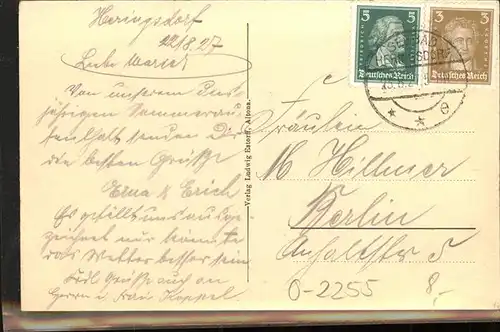 Heringsdorf
22/8.27
Liebe Marie!
Von unserem dies
jährigen Sommerau-
fenthalt senden Dir
die besten Grüße
Erna & Erich
Es gefällt uns ausge-
zeichnet nur könnte
das Wetter besser sein
Grüße auch an
Herrn u Frau Koppel
Verlag Ludwig Estorff, Altona.
5 5
Deutsches Reich
3 3
Deutsches Reich
Fräulein
M Hillmer
Berlin
Anhaltstr 5
O-2255
8,-